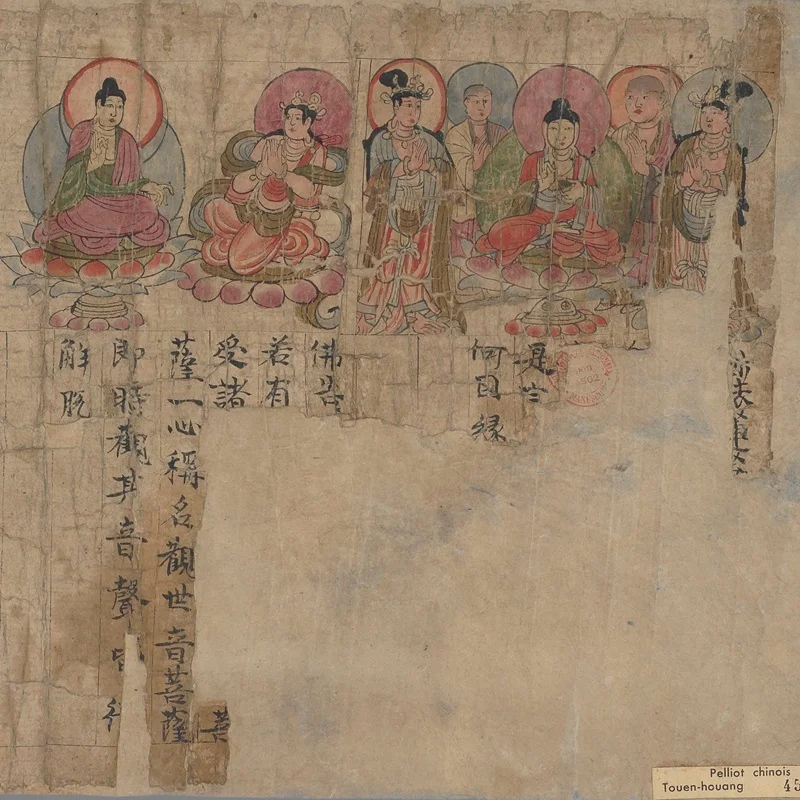 是
何因緣
佛告
若有
受諸 菩
薩一心稱名觀世音菩薩
即時觀其音聲皆
解脫
Pelliot chinois
Touen-houang 45